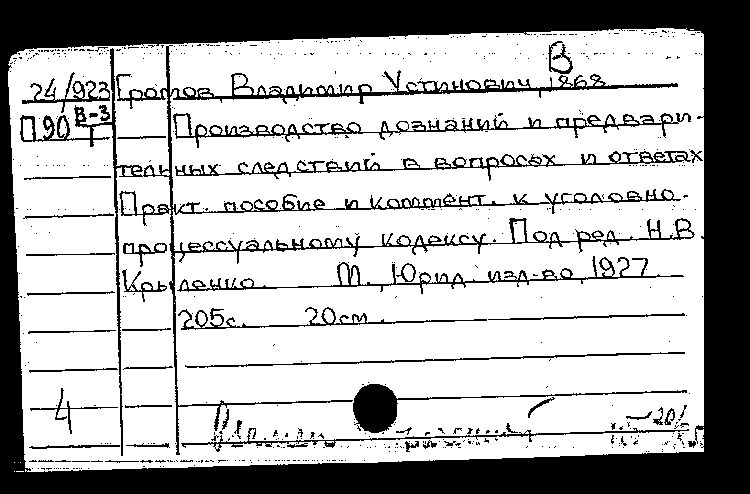 В
24/923 Громов, Владимир Устинович, 1868
П90 В-3/1 Производство дознаний и предвари-
тельных следствий в вопросах и ответах
Практ. пособие и коммент. к уголовно-
процессуальному кодексу. Под ред. Н.В.
Крыленко. М., Юрид. изд-во, 1927.
205с. 20см.
4